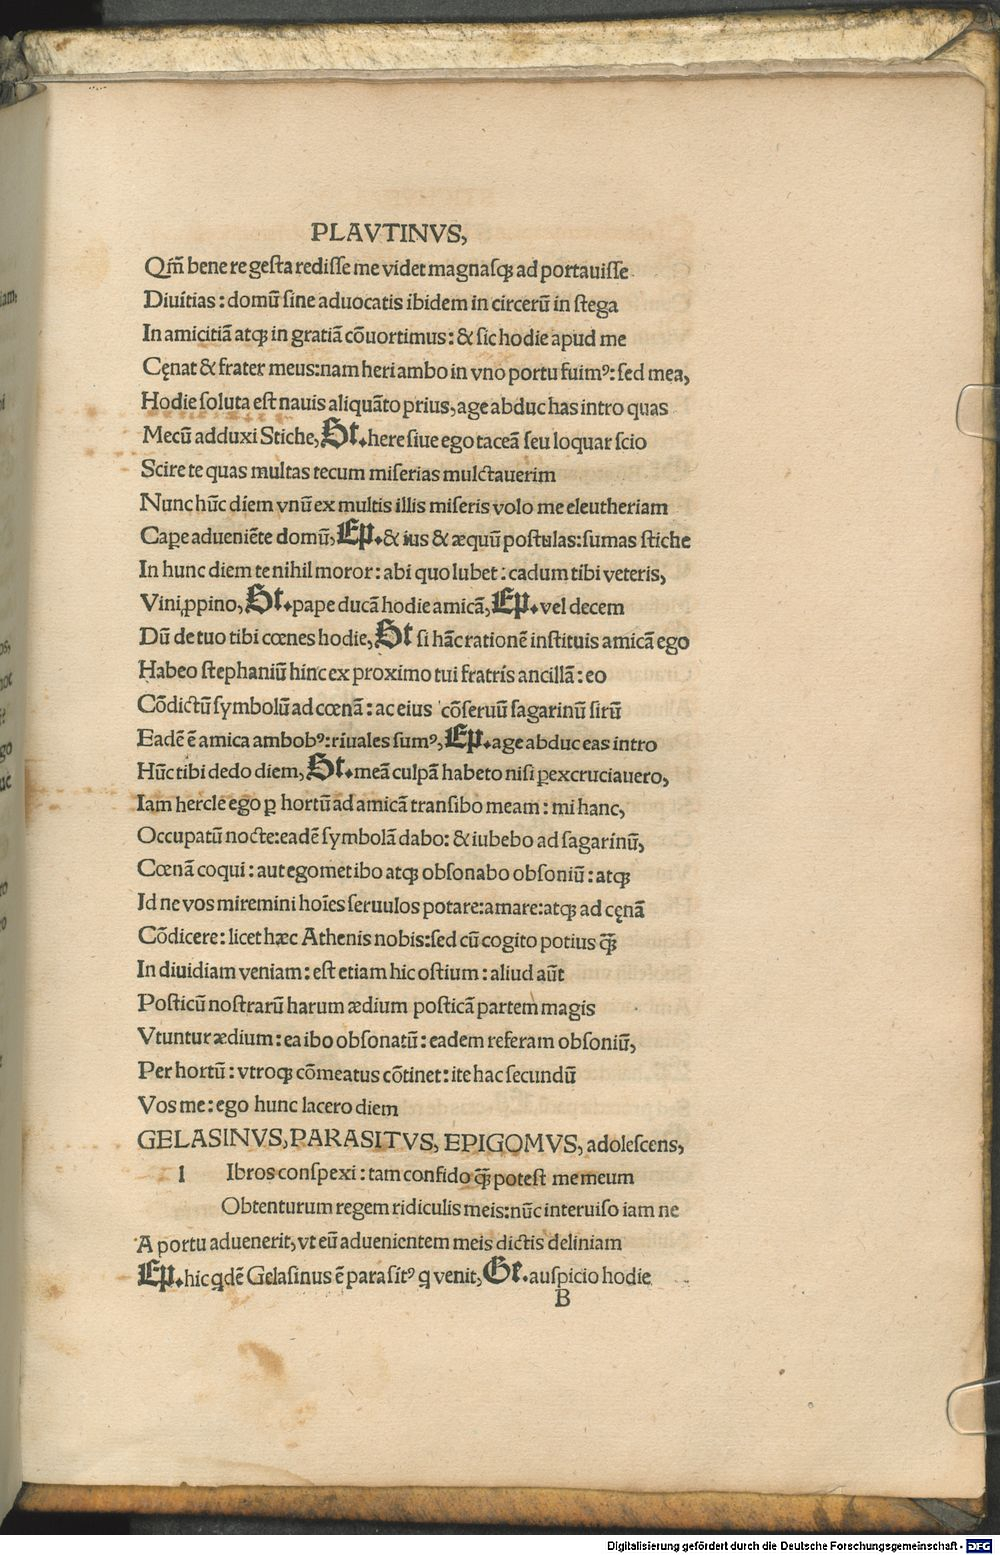 PLAVTINVS,
Qm̃ bene re gesta redisse me videt magnasqꝫ ad portauisse
Diuitias: domũ sine aduocatis ibidem in circerũ in stega
In amicitiã atqꝫ in gratiã cõuortimus: & sic hodie apud me
Cęnat & frater meus: nam heri ambo in vno portu fuimꝰ: sed mea,
Hodie soluta est nauis aliquãto prius, age abduc has intro quas
Mecũ adduxi Stiche, St. here siue ego taceã seu loquar scio
Scire te quas multas tecum miserias mulctauerim
Nunc hũc diem vnũ ex multis illis miseris volo me eleutheriam
Caꝑe adueniẽte domũ, Ep. & ius & æquũ postulas: sumas stiche
In hunc diem te nihil moror: abi quo lubet: cadum tibi veteris,
Vini ꝓpino, St. pape ducã hodie amicã, Ep. vel decem
Dũ de tuo tibi cœnes hodie, St si hãc rationẽ instituis amicã ego
Habeo stephaniũ hinc ex proximo tui fratris ancillã: eo
Cõdictũ symbolũ ad cœnã: ac eius cõseruũ sagarinũ sirũ
Eadẽ ẽ amica ambobꝰ: riuales sumꝰ, Ep. age abduc eas intro
Hũc tibi dedo diem, St. meã culpã habeto nisi ꝑexcruciauero,
Iam hercle ego ꝑ hortũ ad amicã transibo meam: mi hanc,
Occupatũ nocte: eadẽ symbolã dabo: & iubebo ad sagarinũ,
Cœnã coqui: aut egomet ibo atqꝫ obsonabo obsoniũ: atqꝫ
Id ne vos miremini hoĩes seruulos potare: amare: atqꝫ ad cęnã
Cõdicere: licet hæc Athenis nobis: sed cũ cogito potius q̃ꝫ
In diuidiam veniam: est etiam hic ostium: aliud aũt
Posticũ nostrarũ harum ædium posticã partem magis
Vtuntur ædium: ea ibo obsonatũ: eadem referam obsoniũ,
Per hortũ: vtroqꝫ cõmeatus cõtinet: ite hac secundũ
Vos me: ego hunc lacero diem
GELASINVS, PARASITVS, EPIGOMVS, adolescens,
l Ibros conspexi: tam confido q̃ꝫ potest me meum
Obtenturum regem ridiculis meis: nũc interuiso iam ne
A portu aduenerit, vt eũ aduenientem meis dictis deliniam
Ep. hic qdẽ Gelasinus ẽ parasitꝰ q venit, Ge. auspicio hodie
B
Digitalisierung gefördert durch die Deutsche Forschungsgemeinschaft - DFG